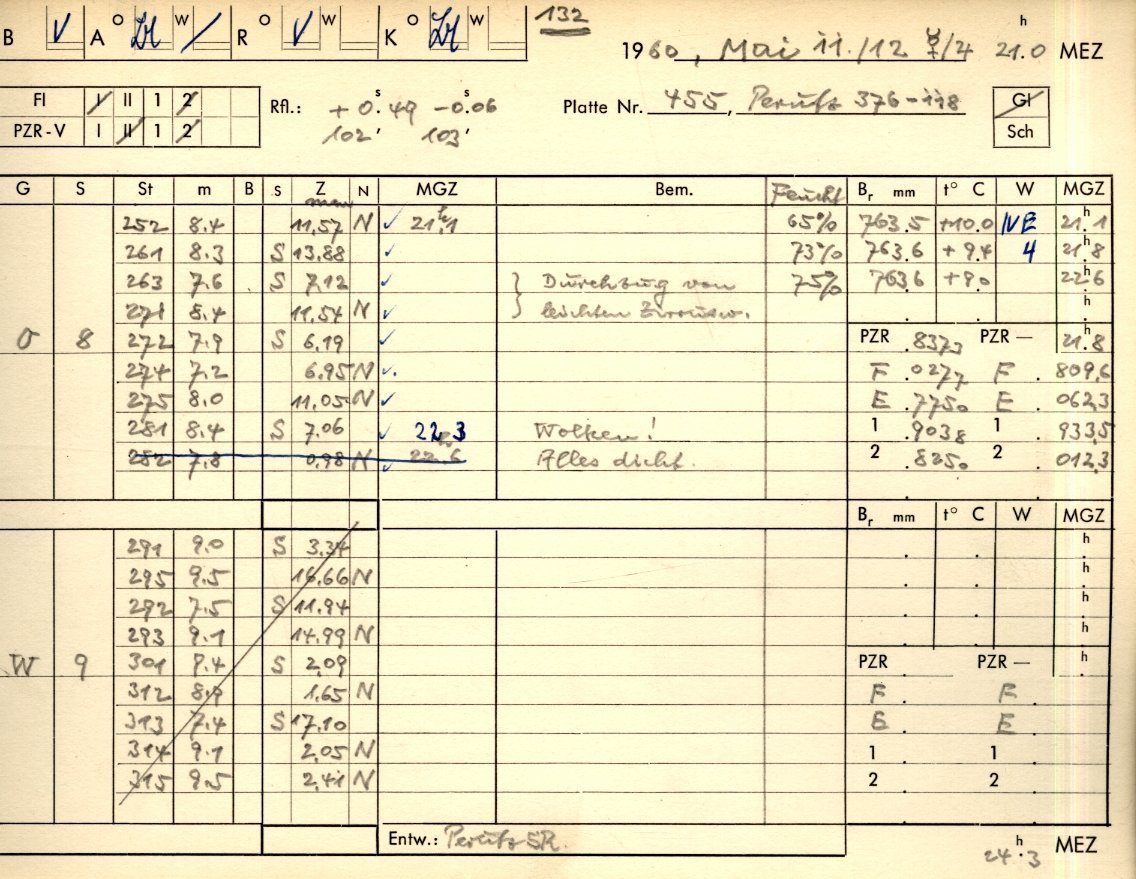 132
B V A O W R O V W K O W
1960, Mai 11./12 ☿/♃ 21.0 h MEZ
FI I II 1 2 Rfl.: +0.49 s -0.06 s Platte Nr. 455, Perutz 376-118 Gl
PZR-V I II 1 2 102' 103' Sch
G S St m B S Z N MGZ Bem. Feucht Br mm t° C W MGZ
252 8.4 11,57 N ✓ 21h.1 65% 763.5 +10.0 NE 21h.1
261 8.3 S 13,88 ✓ 73% 763.6 +9.4 4 21h.8
263 7.6 S 7,12 ✓ } Durchzug von 75% 763.6 +9.0 22h.6
271 8.4 11,54 N ✓ leichten h
O 8 272 7.9 S 6,19 ✓ PZR .8373 PZR — 21h.8
274 7.2 6,95 N ✓. F .0277 F . 809,6
275 8.0 11,05 N ✓ E .7750 E . 062,3
281 8.4 S 7.06 ✓ 22.3 Wolken! 1 .9038 1 . 933,5
282 7.8 0,98 N ✓ 22.6 Alles dicht. 2 .8250 2 . 012,3
Br mm t° C W MGZ
291 9.0 S 3.34 h
295 9.5 16,66 N h
292 7.5 S 11.94 h
293 9.1 14,99 N h
W 9 301 S 2,09 PZR PZR — h
312 8.9 1,65 N F . F .
313 7.4 S 17,10 E . E .
314 9.1 2,05 N 1 . 1 .
315 9.5 2,41 N 2 . 2 .
Entw.: Perutz SR. 24h.3 MEZ